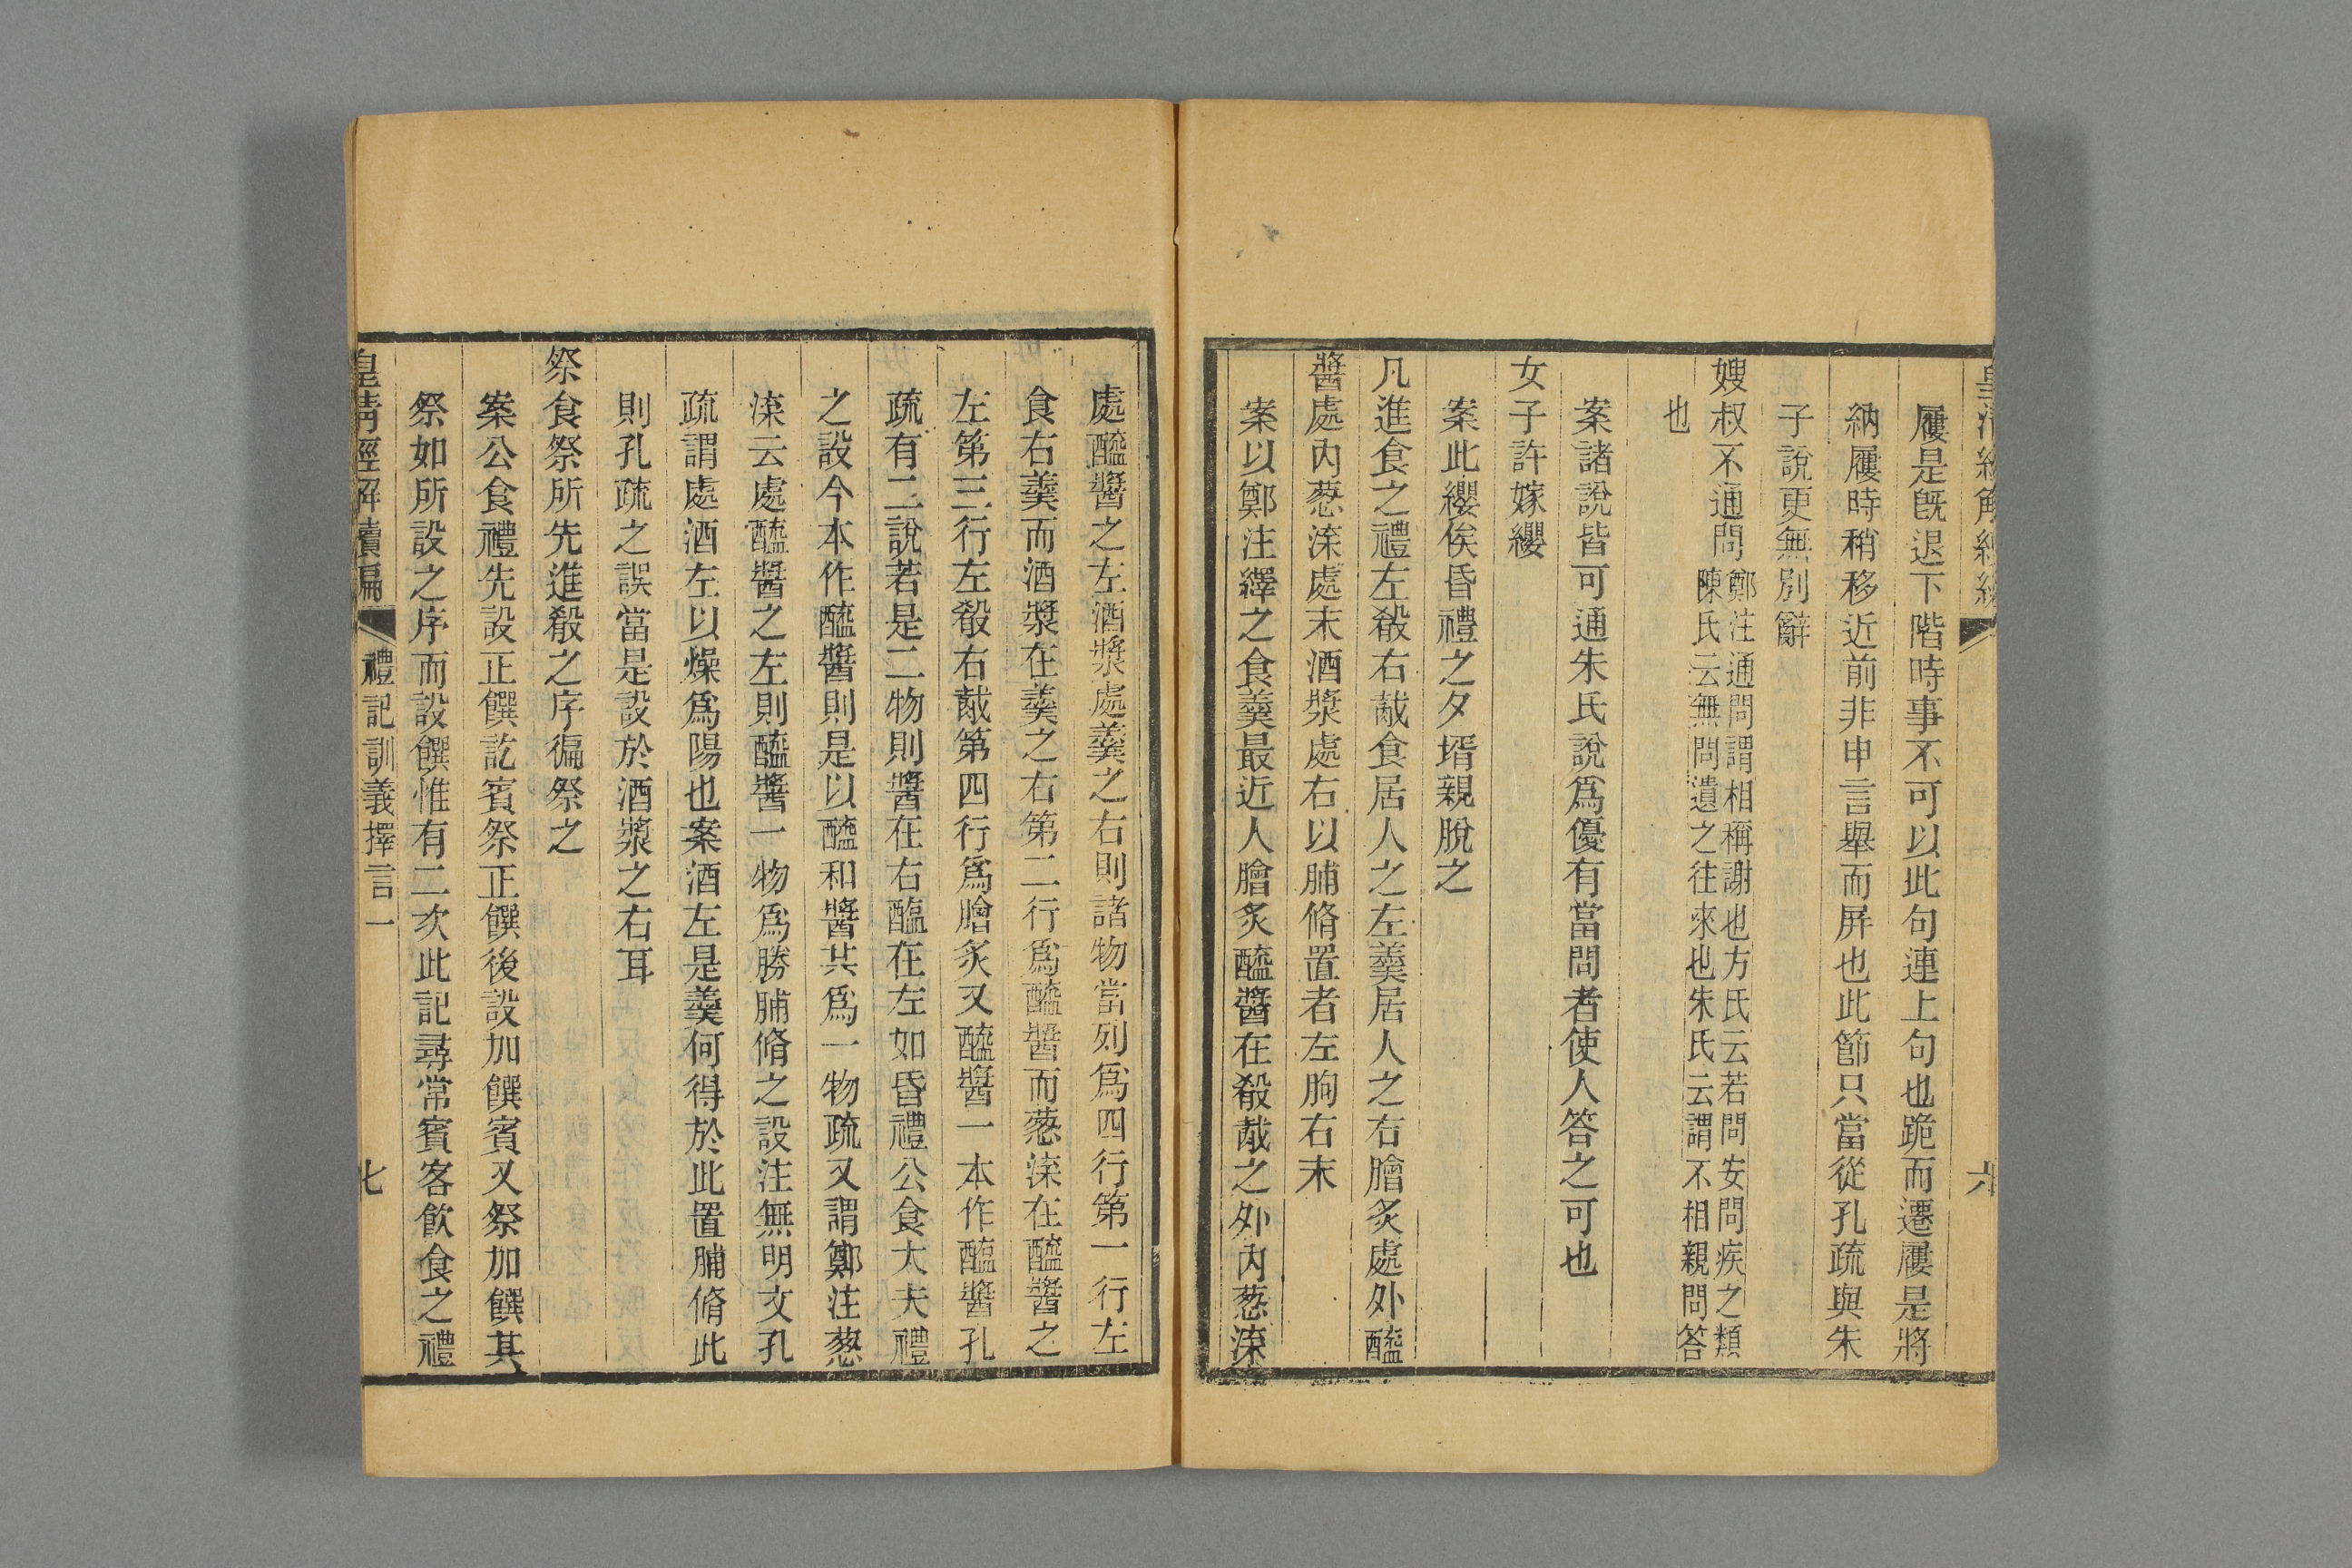 屨是旣退下階時事不可以此句連上句也跪而遷屨是將
納屨時稍移近前非申言舉而屏也此節只當從孔疏與朱
子說更無別辭
嫂叔不通問鄭注通問謂相稱謝也方氏云若問安問疾之類
陳氏云無問遺之往來也朱氏云謂不相親問答
也
案諸說皆可通朱氏說爲優有當問者使人答之可也
女子許嫁纓
案此纓俟昏禮之夕壻親脫之
凡進食之禮左殽右胾食居人之左羹居人之右膾炙處外醯
醬處內葱渫處末酒漿處右以脯脩置者左朐右末
案以鄭注繹之食羹最近人膾炙醯醬在殽胾之外內葱渫
處醯醬之左酒漿處羹之右則諸物當列爲四行第一行左
食右羹而酒漿在羹之右第二行爲醯醬而葱渫在醯醬之
左第三行左殽右胾第四行爲膾炙又醯醬一本作醢醬孔
疏有二說若是二物則醬在右醢在左如昏禮公食大夫禮
之設今本作醯醬則是以醯和醬共爲一物疏又謂鄭注葱
渫云處醯醬之左則醯醬一物爲勝脯脩之設注無明文孔
疏謂處酒左以燥爲陽也案酒左是羹何得於此置脯脩此
則孔疏之誤當是設於酒漿之右耳
祭食祭所先進殽之序徧祭之
案公食禮先設正饌訖賓祭正饌後設加饌賓又祭加饌其
祭如所設之序而設饌惟有二次此記尋常賓客飮食之禮
皇淸經解續編
禮記訓義擇言一
七